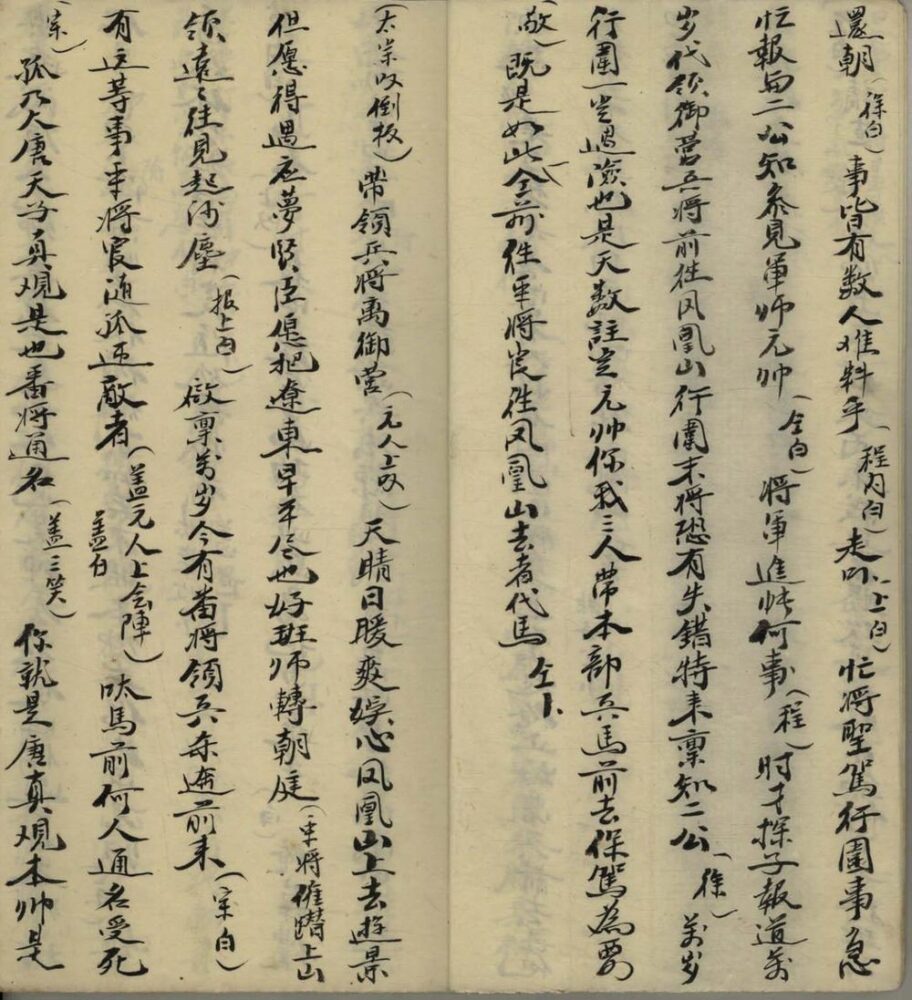 還朝（徐白）事皆有数人难料乎（程内白）走吓（上白）忙将聖駕行圍事急
忙報與二公知参見軍师元帅（仝白）将軍進帐何事（程）时才探子報道萬
岁代領御营兵将前往凤凰山行圍末将恐有失錯特来禀知二公（徐）萬岁
行圍一定遇險也是天数註定元帅你我三人带本部兵馬前去保駕為要
（敬）既是如此仝前往众将官往凤凰山去者代馬 仝下
（太宗叹倒板）带領兵将离御营（元人上叹）天晴日暖爽娱心凤凰山上去遊景
但愿得遇应夢贤臣愿把遼東早平尽也好班师轉朝庭（众将催躦上山
領遠〻往見起沙塵（报上白）啟禀萬岁今有番将領兵杀进前来（宗白）
有这等事众将官随孤迎敵者（盖元人上会陣）盖白 呔馬前何人通名受死
（宗）孤乃大唐天子真观是也番将通名（盖三笑）你就是唐真观本帅是